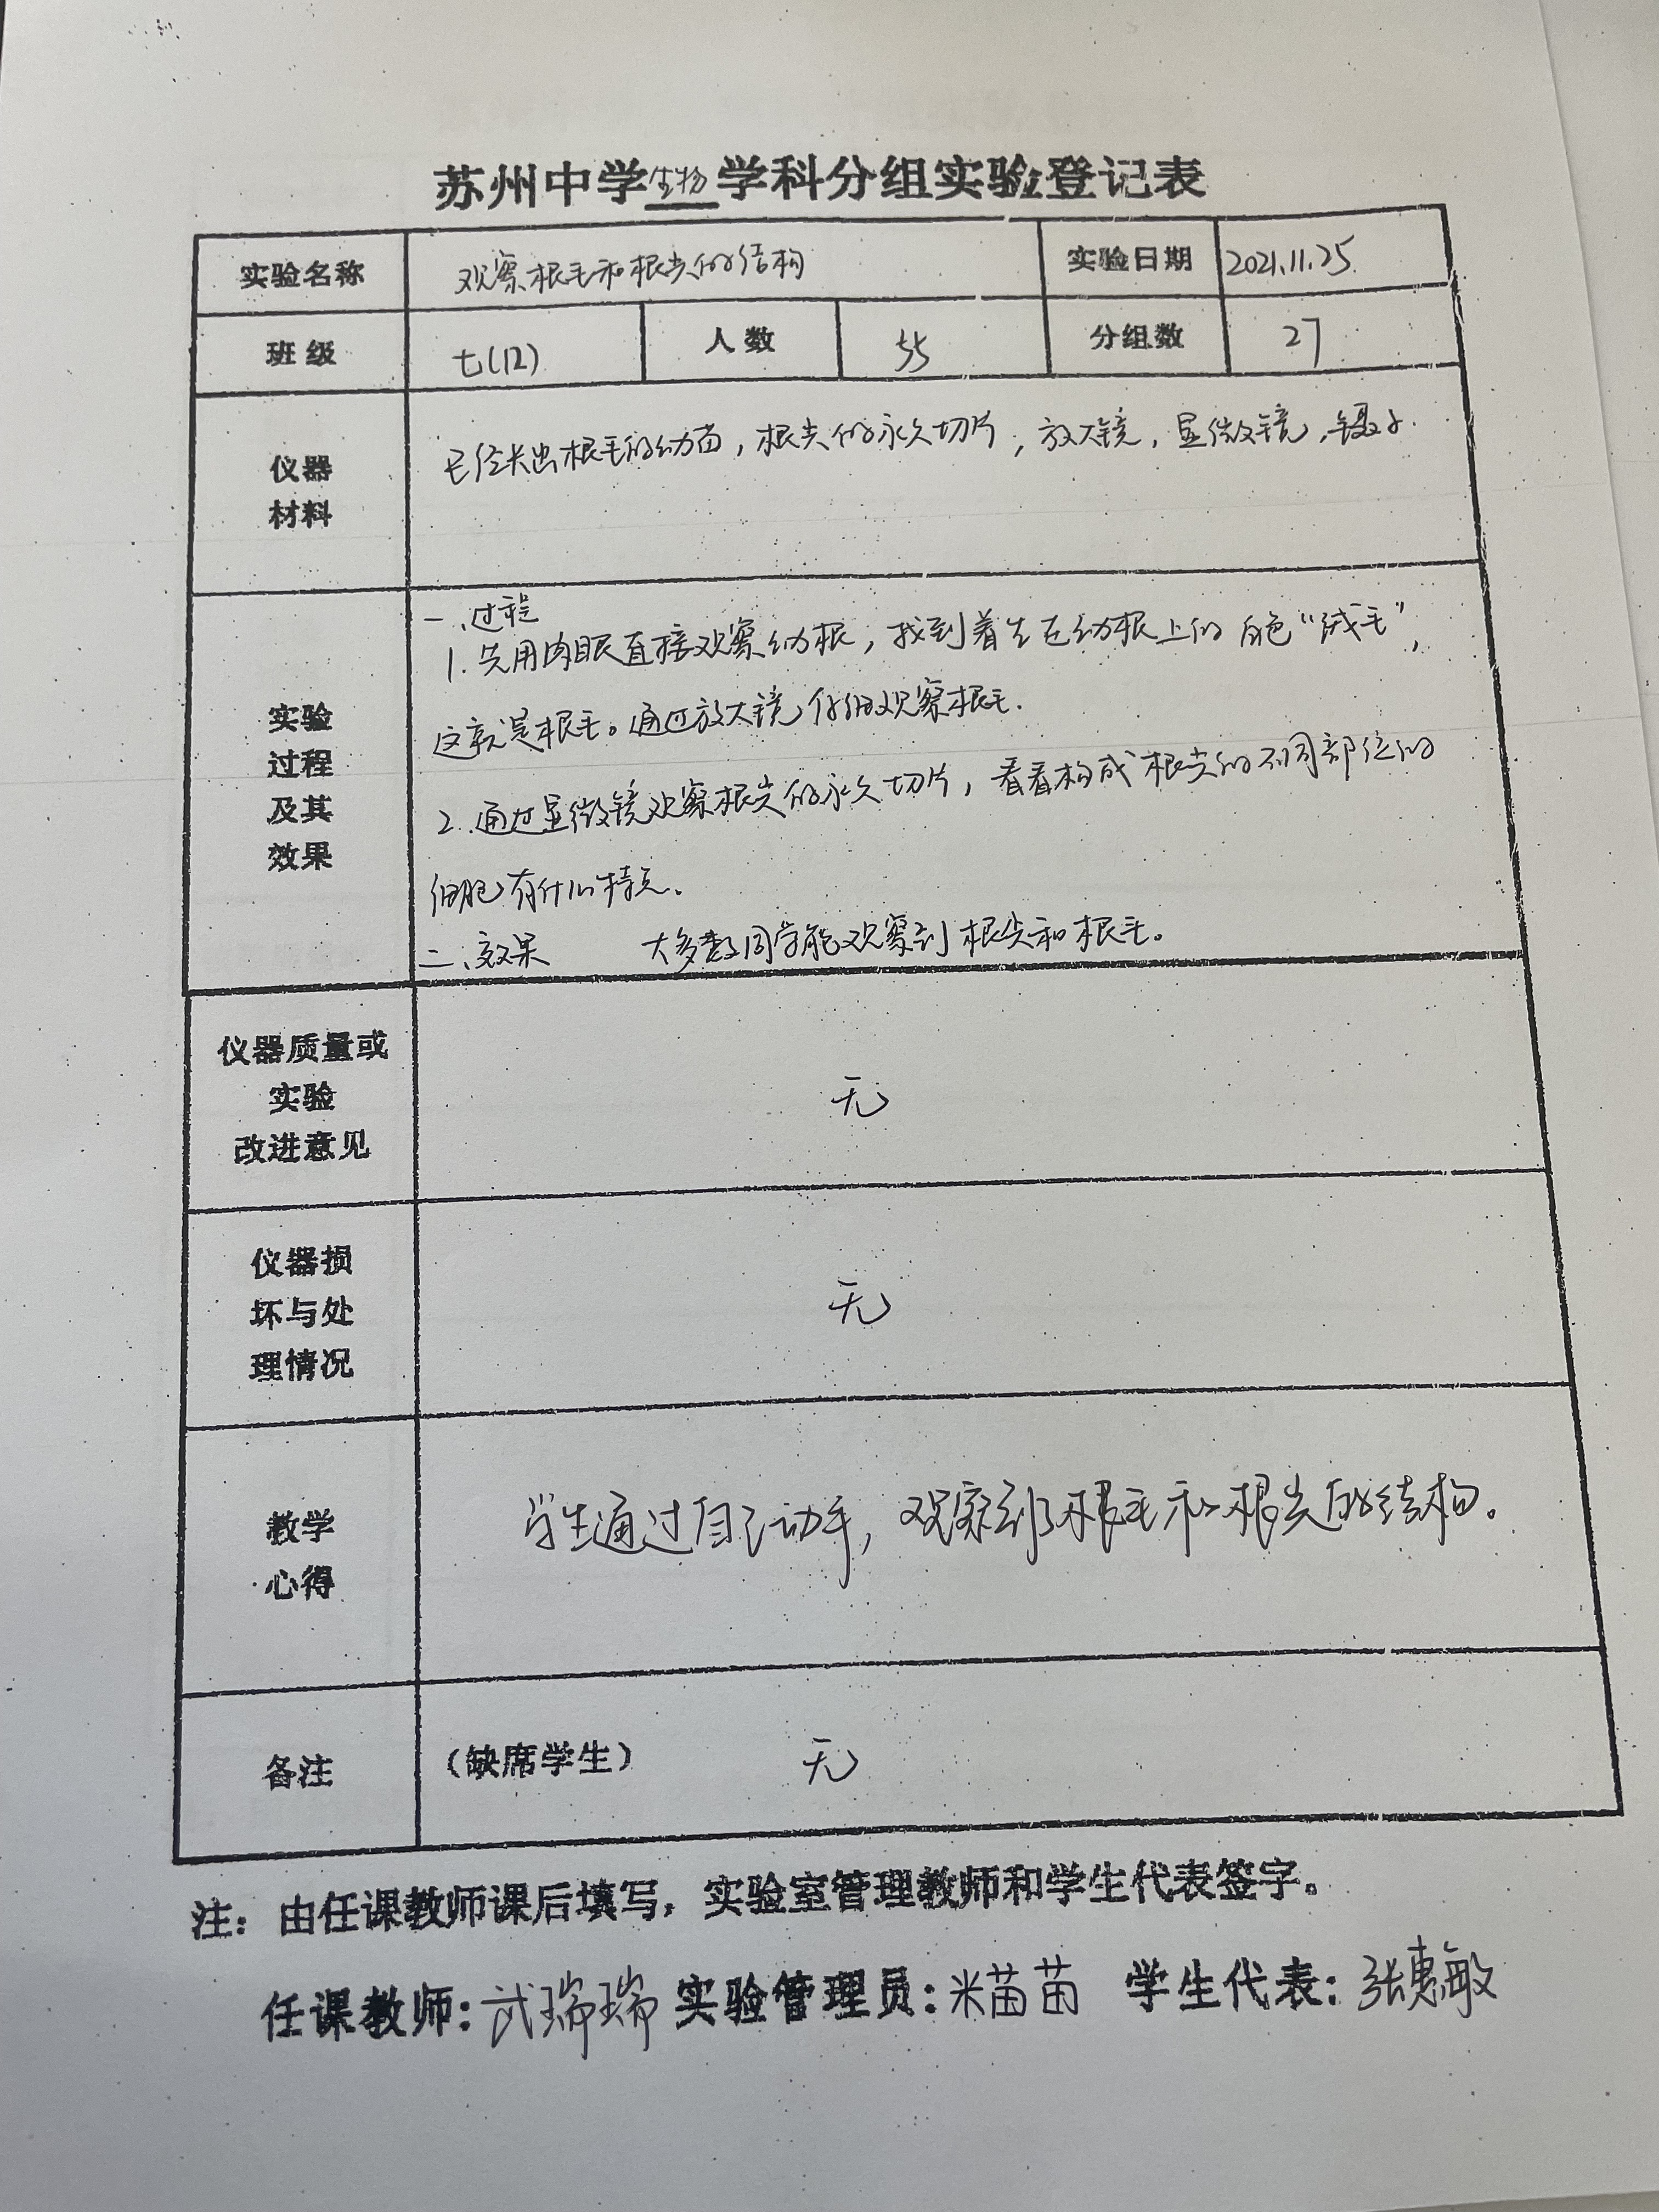 苏州中学生物学科分组实验登记表
实验名称 观察根毛和根尖的结构 实验日期 2021.11.25
班级 七(12) 人数 55 分组数 27
仪器
材料
已经长出根毛的幼苗，根尖的永久切片，放大镜，显微镜，镊子.
实验
过程
及其
效果
一、过程
1.先用肉眼直接观察幼根，找到着生在幼根上的白色“绒毛”，
这就是根毛。通过放大镜仔细观察根毛.
2.通过显微镜观察根尖的永久切片，看看构成根尖的不同部位的
细胞有什么特点。
二、效果 大多数同学能观察到根尖和根毛。
仪器质量或
实验
改进意见
无
仪器损
坏与处
理情况
无
教学
心得
学生通过自己动手，观察到了根毛和根尖的结构。
备注 （缺席学生） 无
注：由任课教师课后填写，实验室管理教师和学生代表签字。
任课教师：武瑞瑞 实验管理员：米苗苗 学生代表：张惠敏